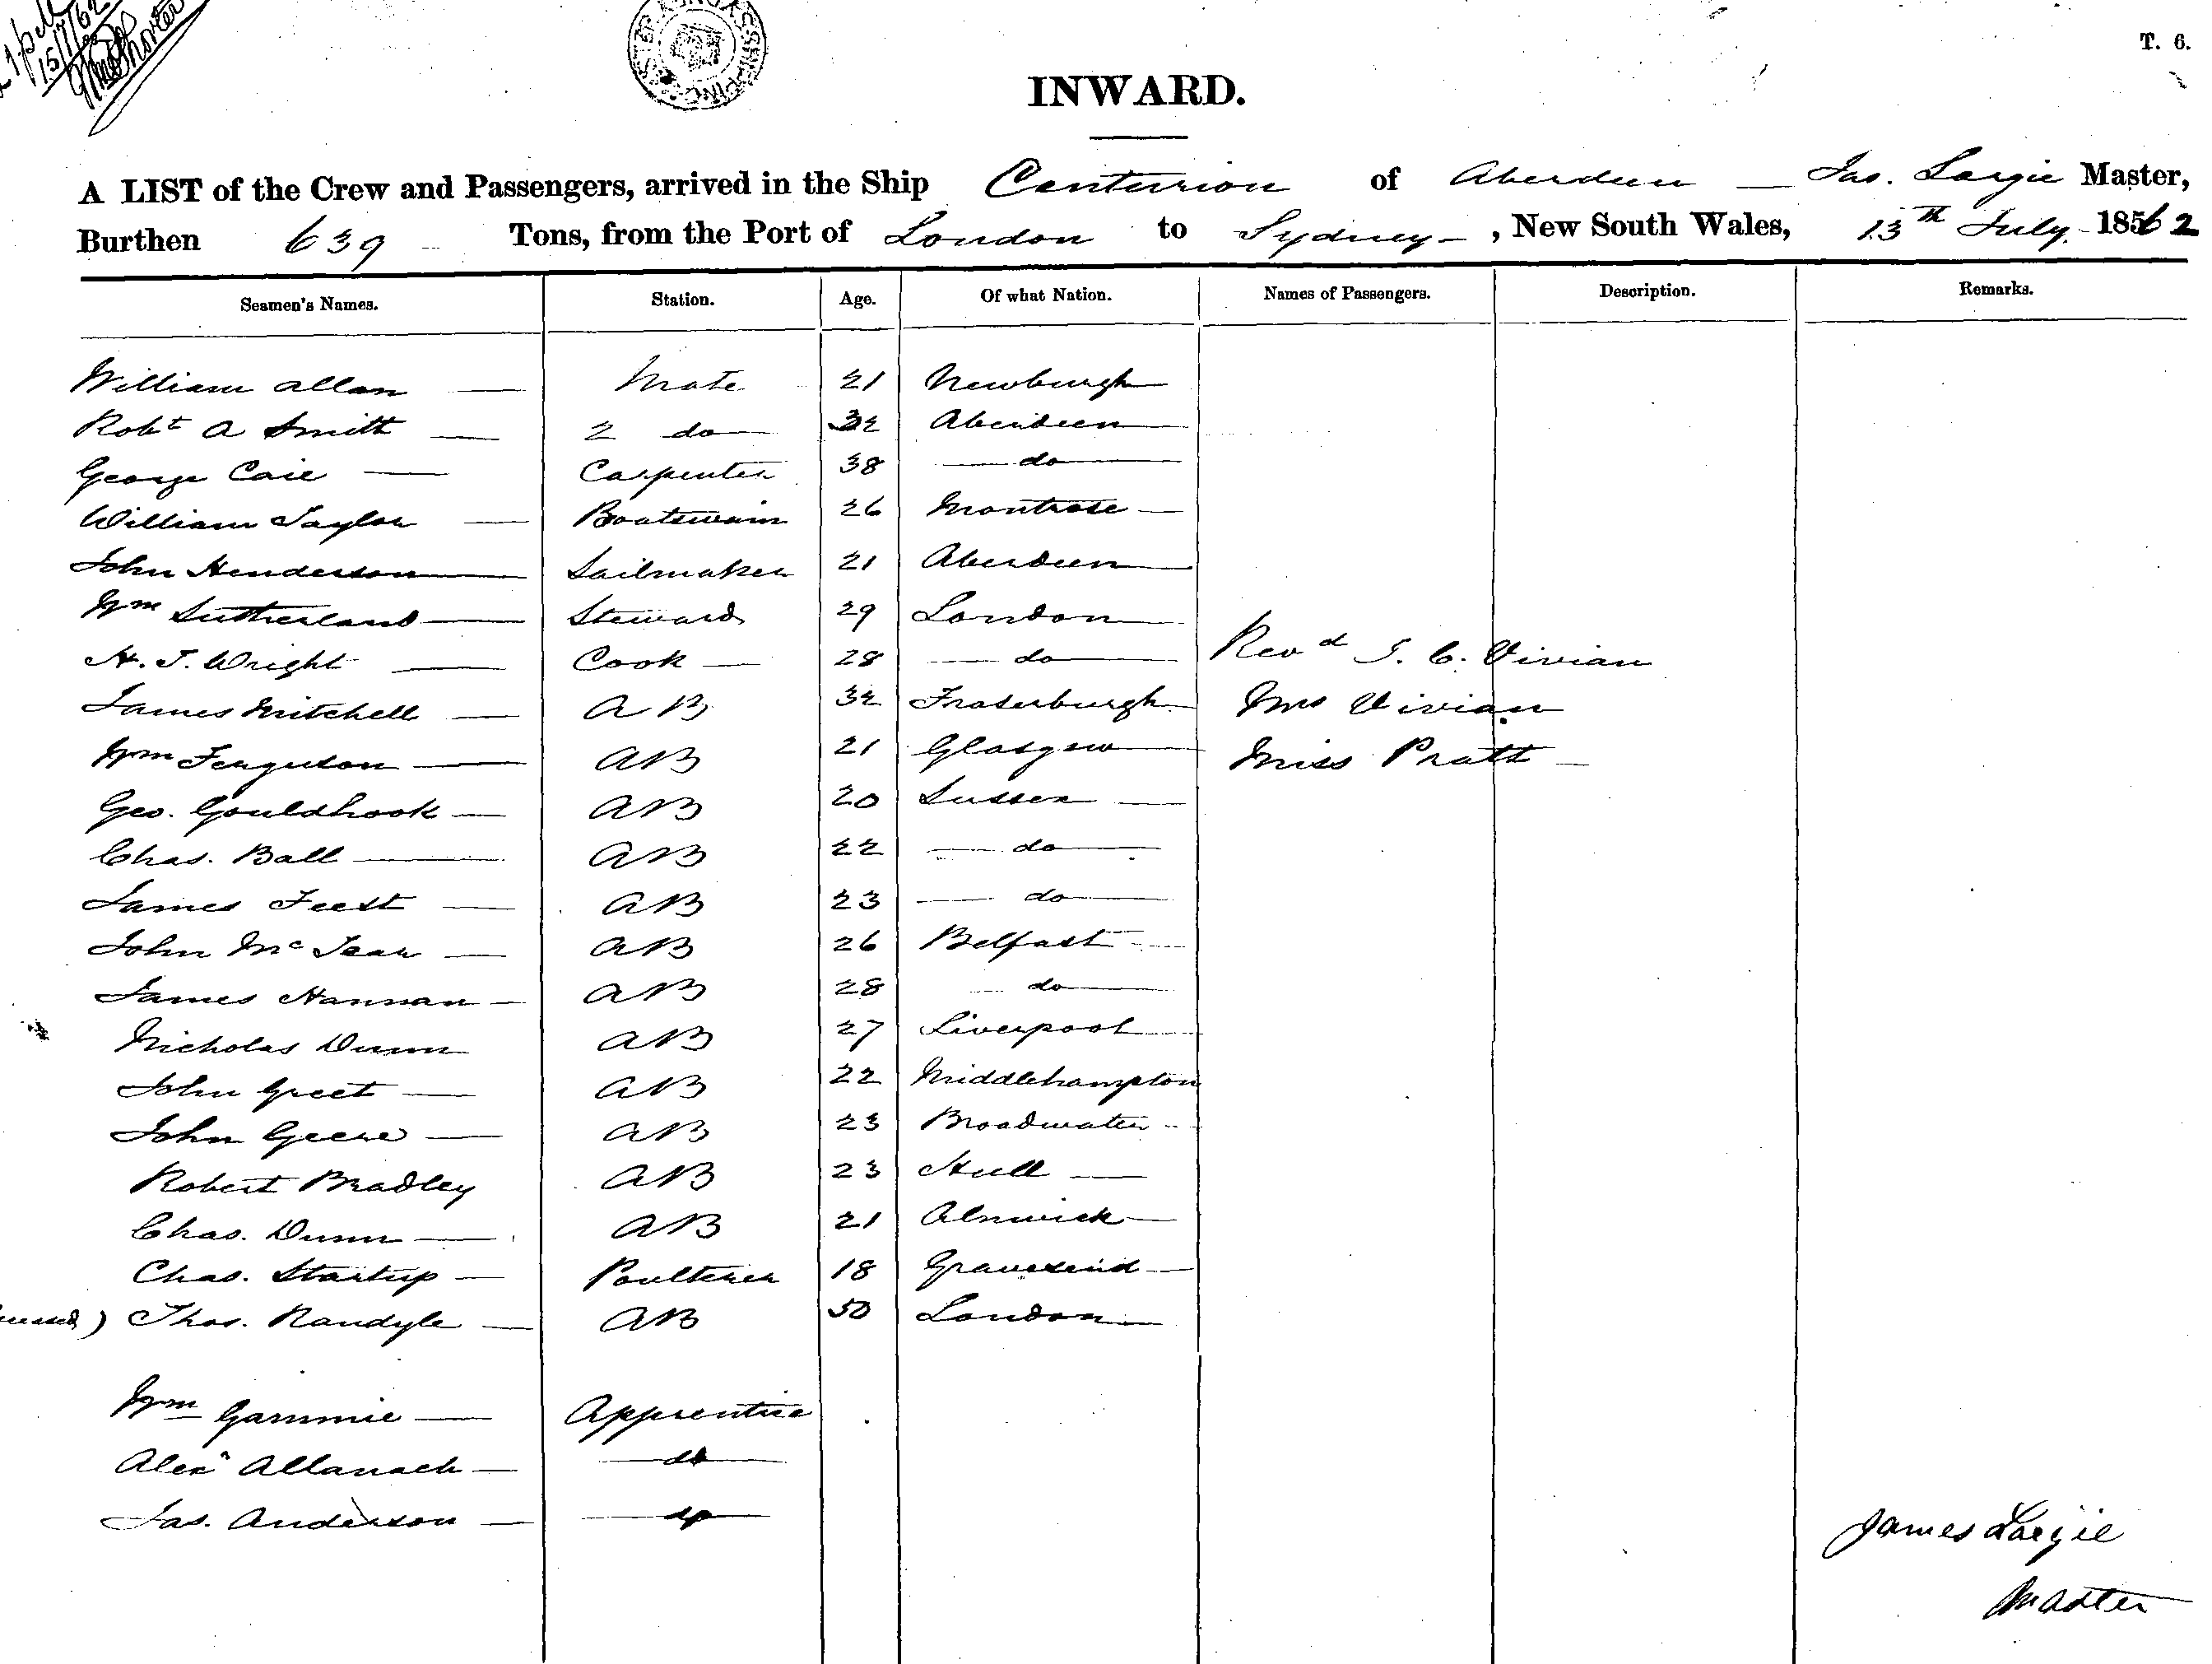 15/7/62
T. 6.
INWARD.
A LIST of the Crew and Passengers, arrived in the Ship Centurion of Aberdeen — Jas. Largie Master,
Burthen 639 Tons, from the Port of London to Sydney , New South Wales, 13th July 1862
Seamen's Names. Station. Age. Of what Nation. Names of Passengers. Description. Remarks.
William Allan Mate 21 Newburgh
Robt A Smith 2 do 32 Aberdeen
George Caie Carpenter 38 do
William Taylor Boatswain 26 Montrose
John Henderson Sailmaker 21 Aberdeen
Wm Sutherland Steward 29 London
H. J. Wright Cook 28 do Revd J. C. Vivian
James Mitchell AB 32 Fraserburgh Mrs Vivian
Wm Ferguson AB 21 Glasgow Miss Pratt
Geo. Gouldhook AB 20 Sussex
Chas. Ball AB 22 do
James Feest AB 23 do
John McTear AB 26 Belfast
James Hannan AB 28 do
Nicholas Dunn AB 27 Liverpool
John Greet AB 22 Middlehampton
John Geere AB 23 Broadwater
Robert Bradley AB 23 Hull
Chas. Dunn AB 21 Alnwick
Chas. Startup Poulterer 18 Gravesend
) Thos. Randyle AB 50 London
Wm Gammie Apprentice
Alexr Allanach do
Jas. Anderson do
James Largie
Master